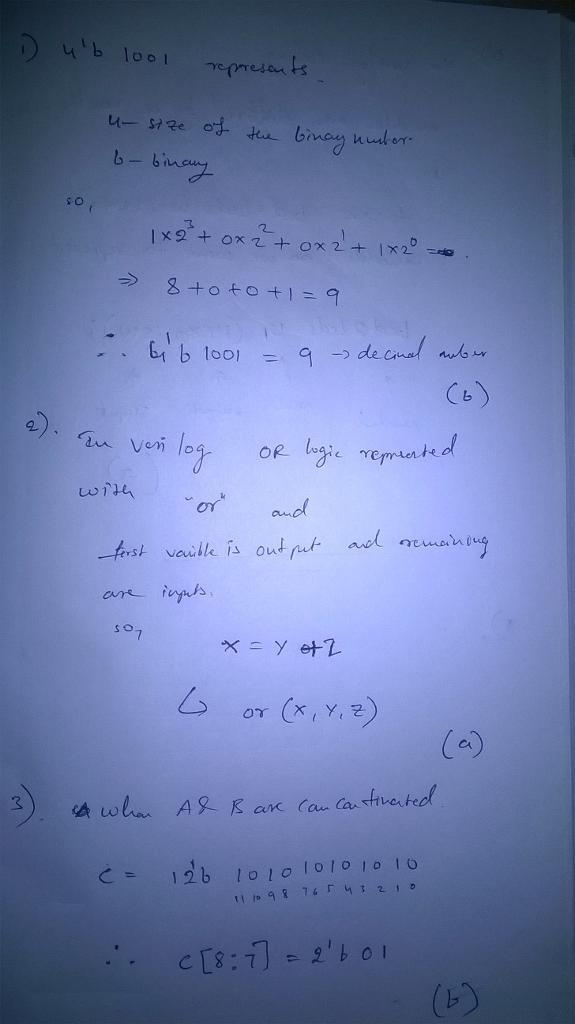 1) 4'b 1001 represents
4- size of the binay number.
b - binary
so,
1x2^3 + 0x2^2 + 0x2^1 + 1x2^0 =
=> 8+0+0+1 = 9
∴ 4'b 1001 = 9 -> decimal
(b)
2). In verilog OR logic represented
with "or" and
first vaible is output and remaining
are inputs.
so,
X = Y + Z
↳ or (X, Y, Z)
(a)
3). when A & B are
C = 12'b 1010 1010 1010
11 10 9 8 7 6 5 4 3 2 1 0
∴ C[8:7] = 2'b 01
(b)